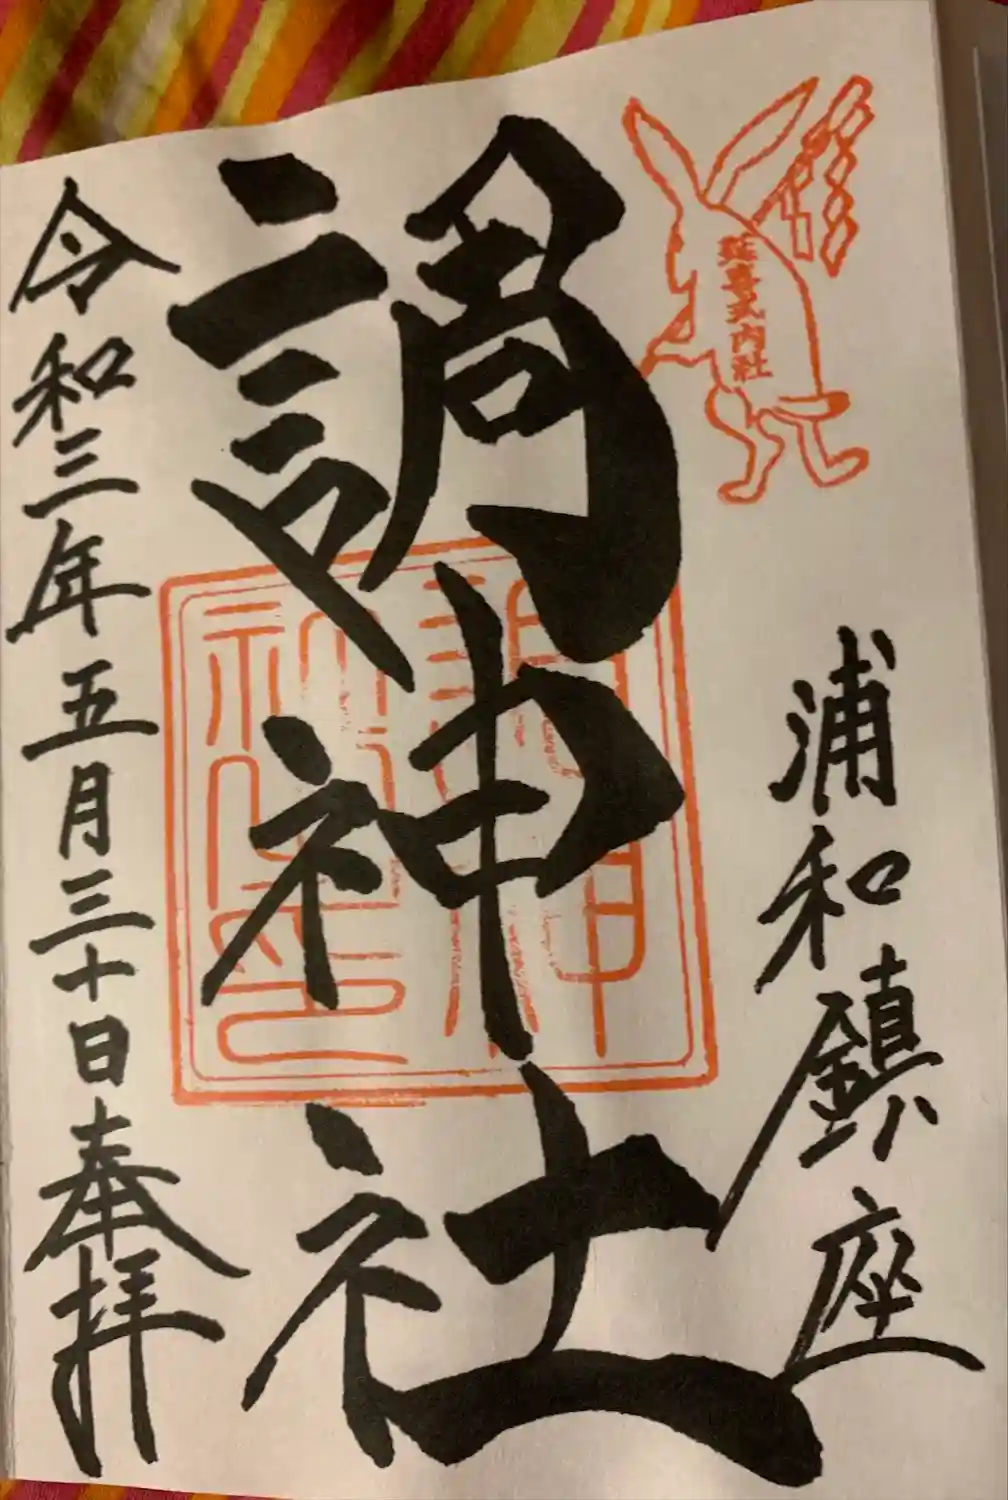 延喜式内社
浦和鎮座
調神社
調神社印
令和三年五月三十日奉拝